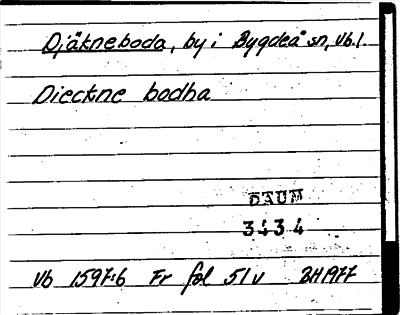 Djäkneboda, by i Bygdeå sn, Vb.l.
Dieckne bodha
DAUM
3434
Vb 1597:6 Fr fol 51v BH1977